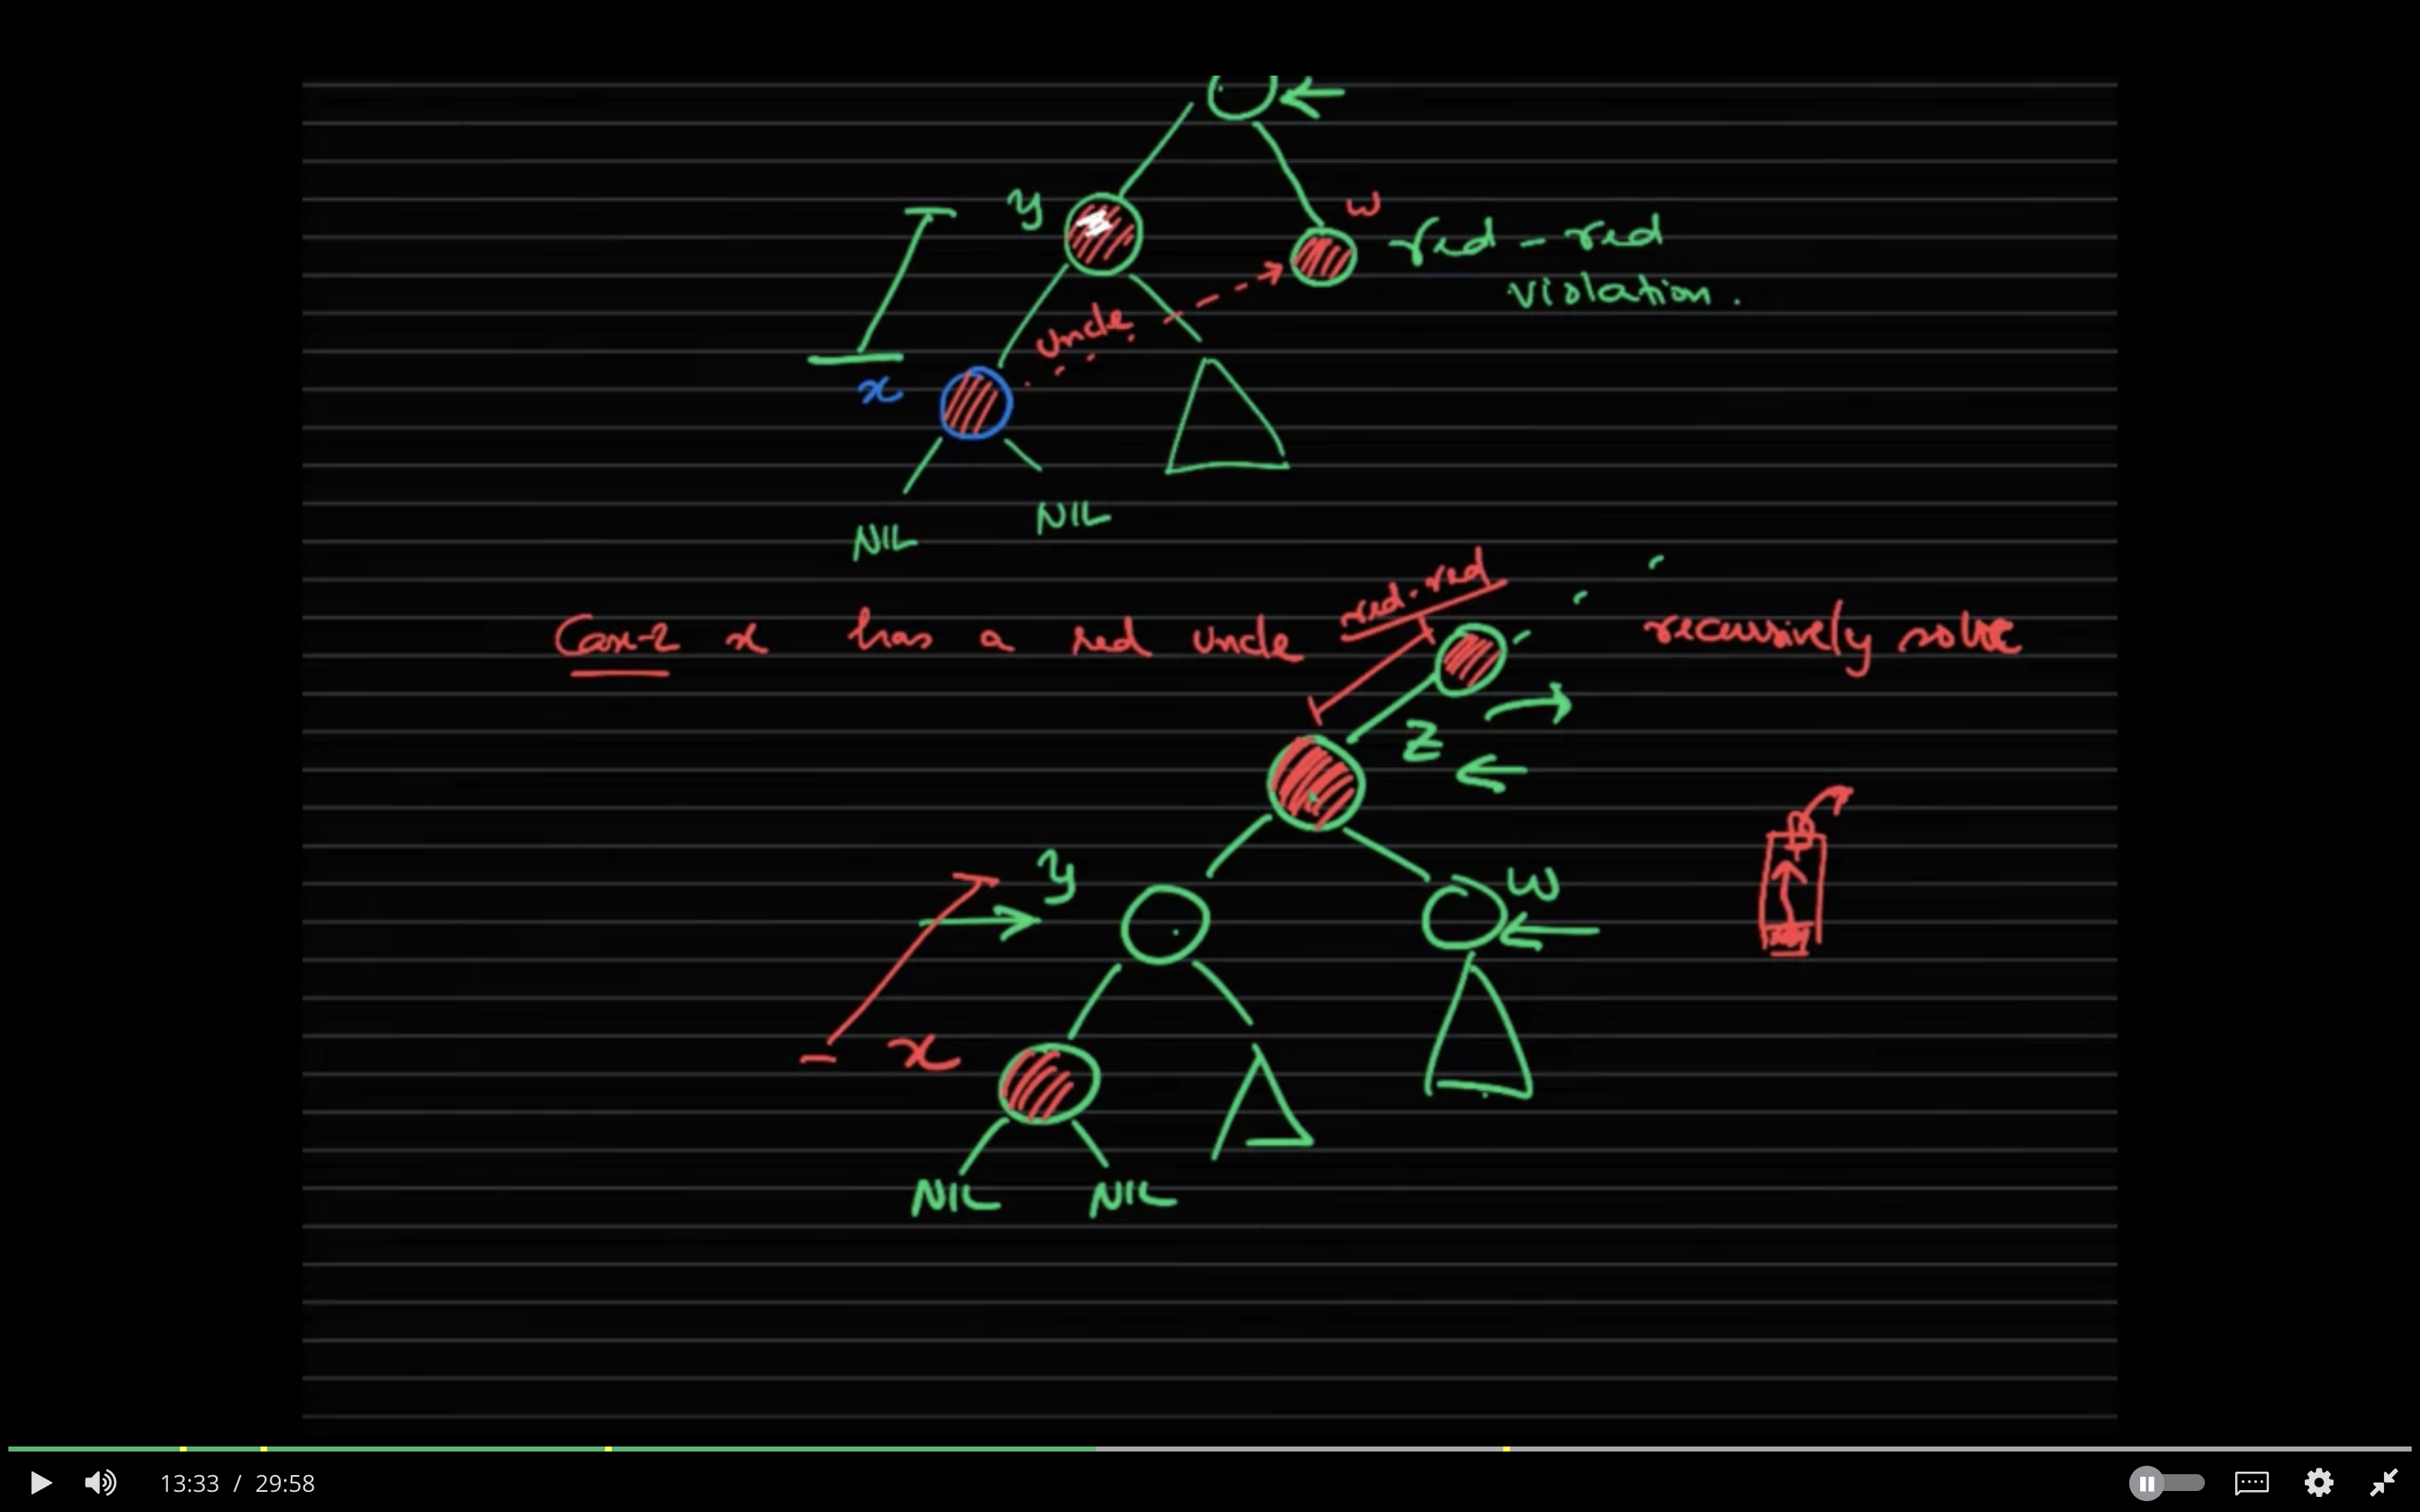 y
w
red - red
violation.
uncle
x
NIL
NIL
red-red
Case-2 x has a red uncle
recursively solve
z
y
w
x
NIL
NIL
13:33 / 29:58